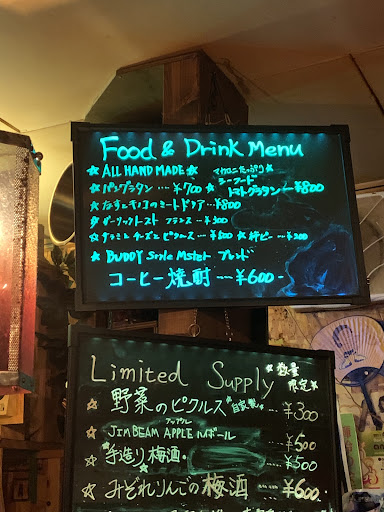 Food & Drink Menu
★ALL HAND MADE★ マカロニたっぷり
★パングラタン … ¥700 ★シーフードトマトグラタン ¥800
★なすとキノコのミートドリア … ¥800
★ガーリックトースト フランス … ¥300
★サラミとチーズとピクルス … ¥500 ★柿ピー … ¥200
★BUDDY Style Mster ブレンド
コーヒー焼酎 ---- ¥600-
Limited Supply ★数量限定★
☆野菜のピクルス 自家製 … ¥300
アップル
☆JIM BEAM APPLE ハイボール ¥500
☆手造り梅酒 … ¥500
☆みぞれりんごの梅酒 ---- ¥600-